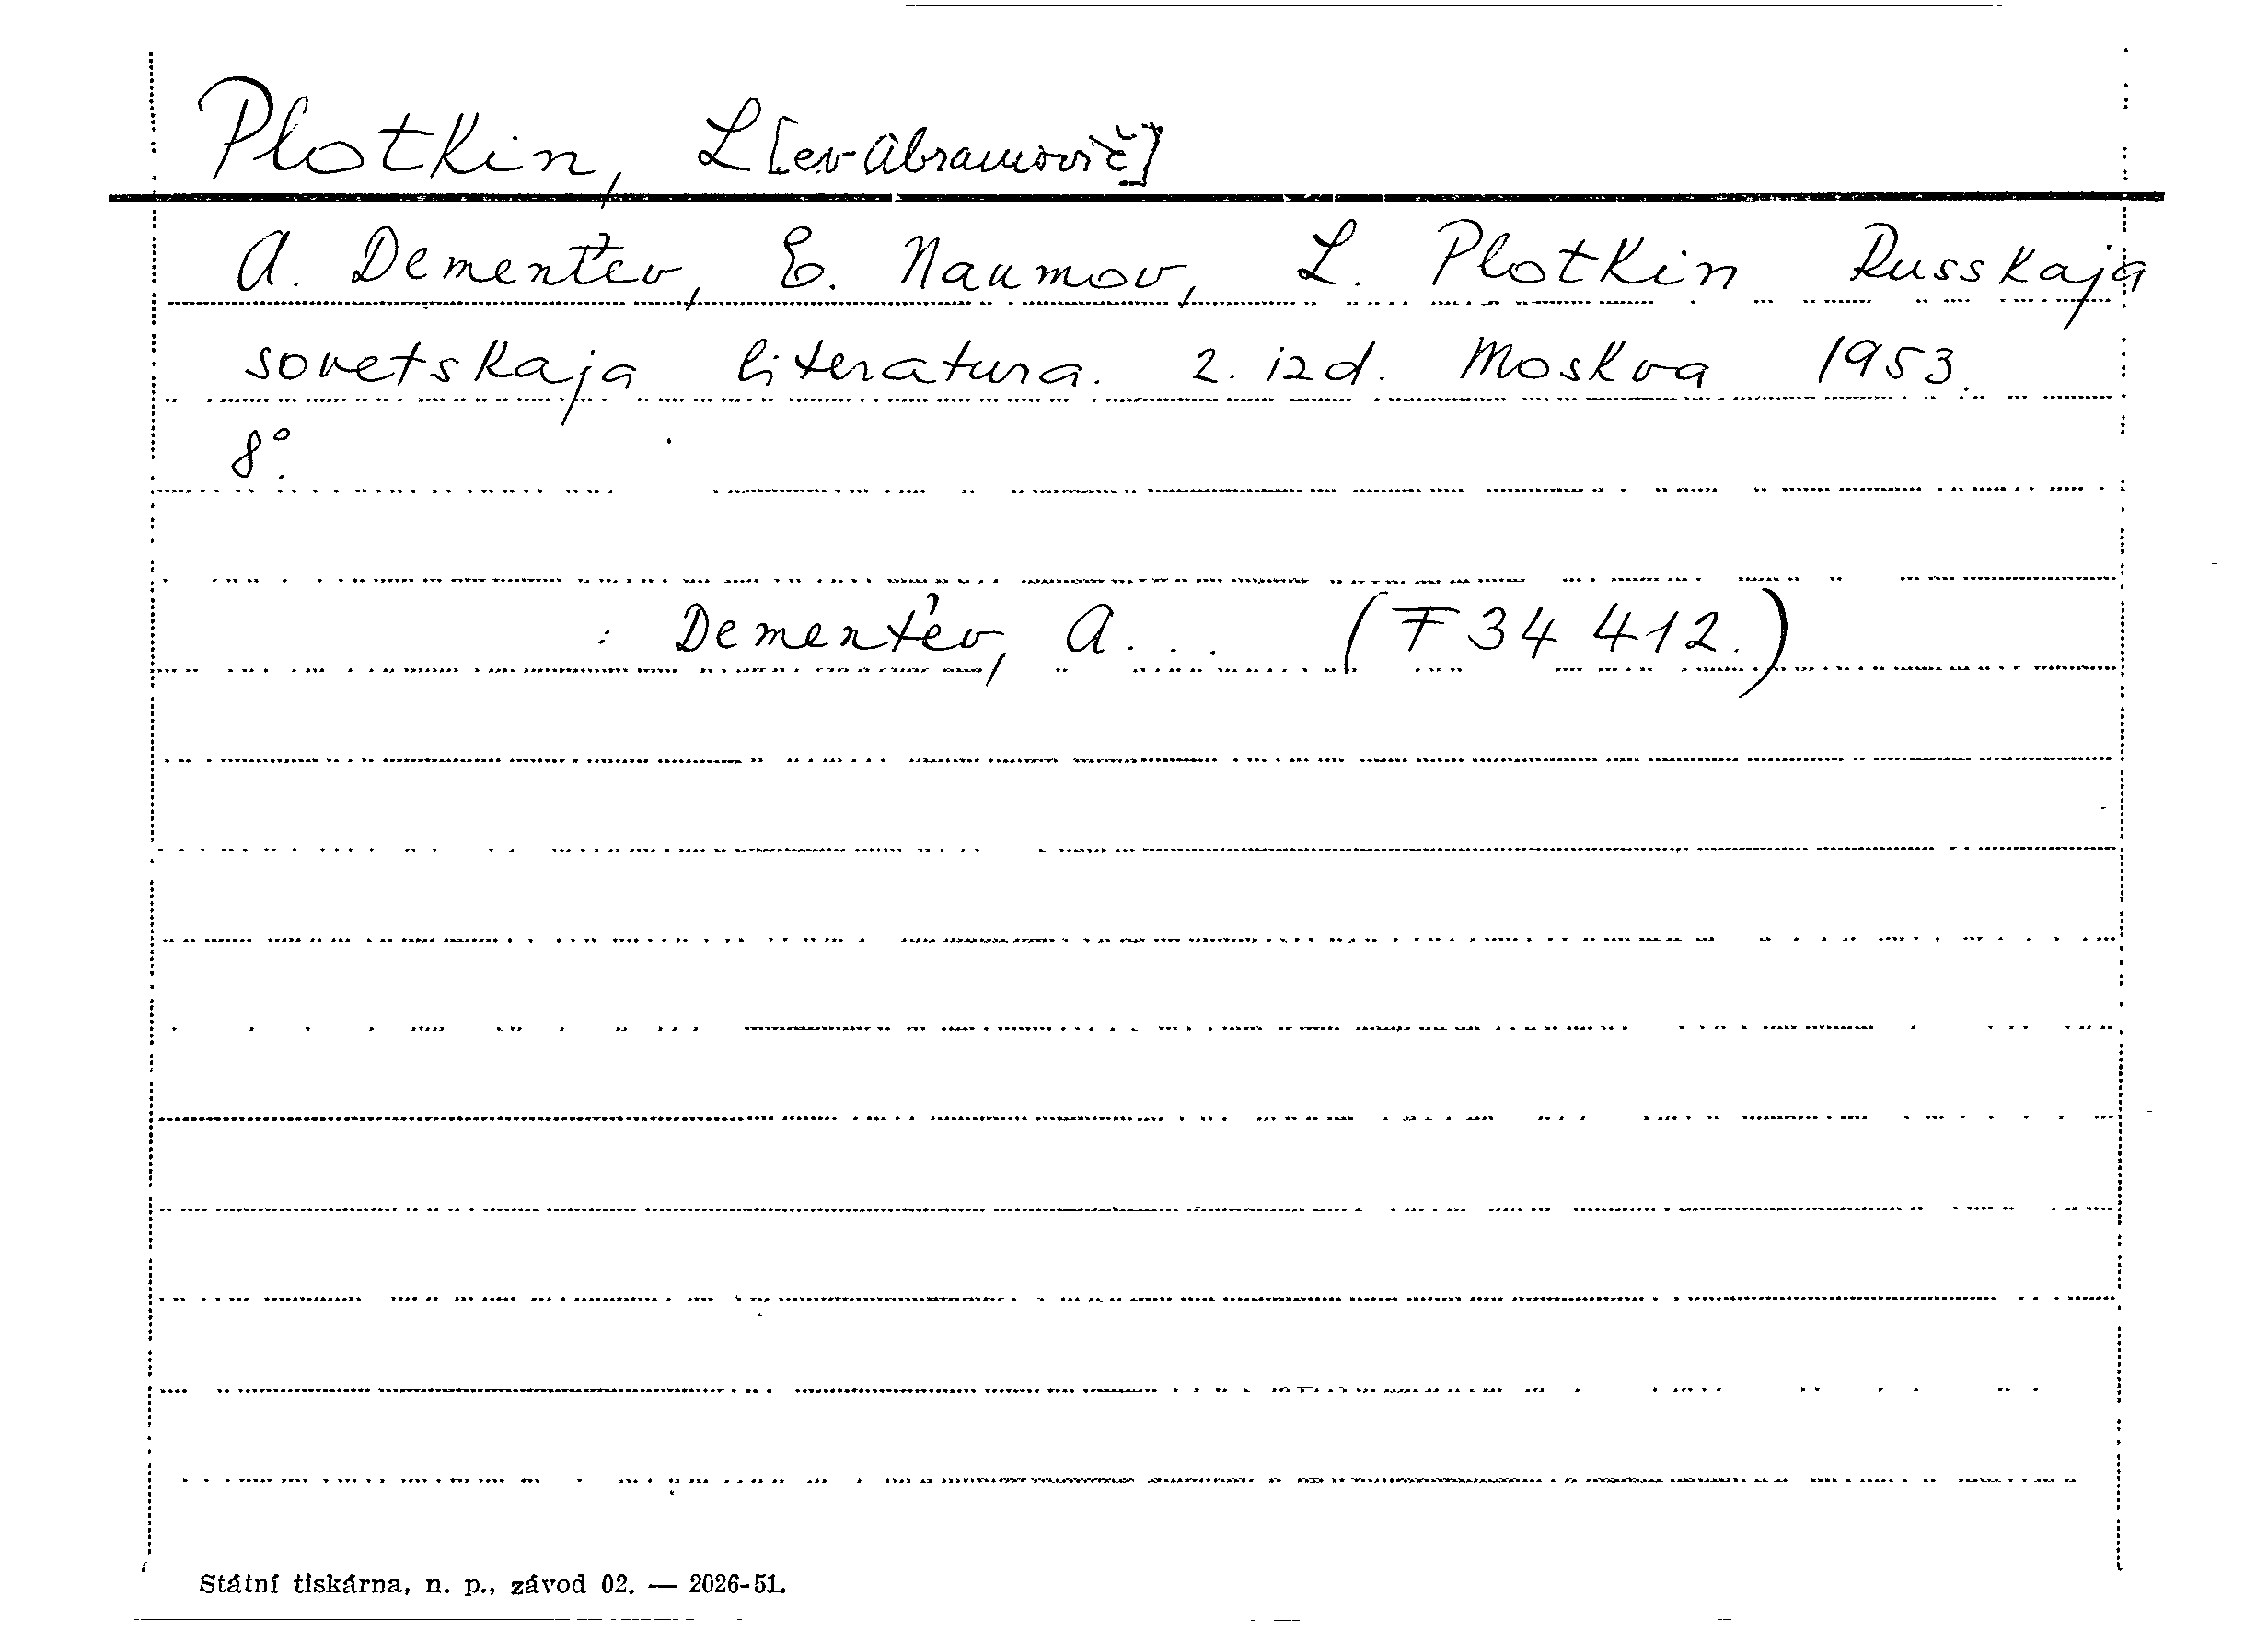 Plotkin, L[ev Abramovič]
A. Dement'ev, E. Naumov, L. Plotkin Russkaja
sovetskaja literatura. 2. izd. Moskva 1953.
8°.
: Dement'ev, A... (F 34 412.)
Státní tiskárna, n. p., závod 02. — 2026-51.